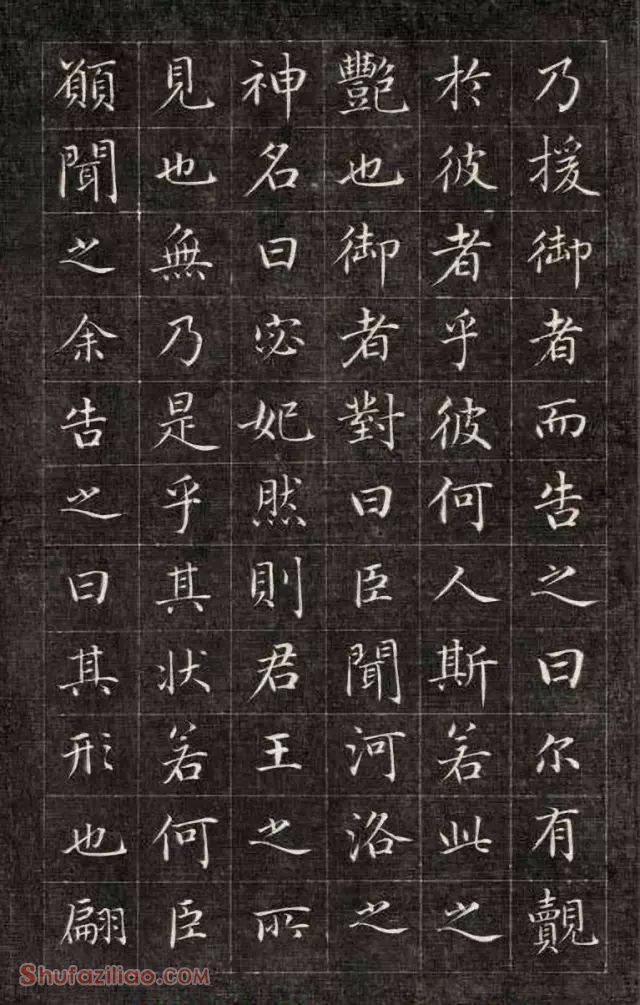 乃援御者而告之曰尔有覿
於彼者乎彼何人斯若此之
艷也御者對曰臣聞河洛之
神名曰宓妃然則君王之所
見也無乃是乎其状若何臣
願聞之余告之曰其形也翩
Shufaziliao.com